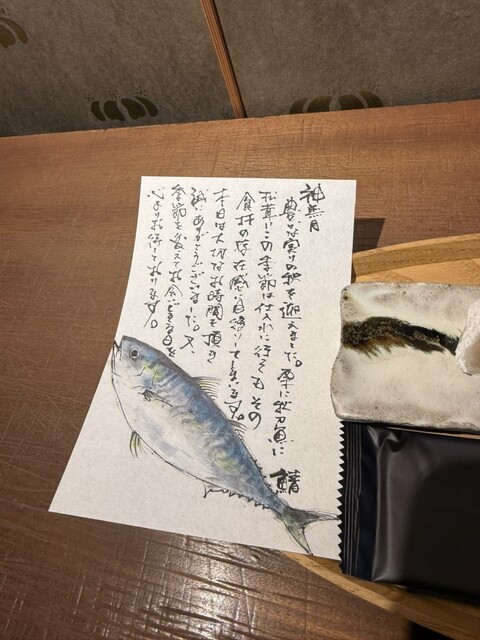 神無月
豊かな実りの秋を迎えました。栗に秋刀魚に
松茸にこの季節は仕入れに行っても その
食材の存在感に目移りしてしまいます。
本日は大切なお時間を頂き
誠にありがとうございました。又、
季節を変えてお会いできる日を
心よりお待ちしております。
鯖